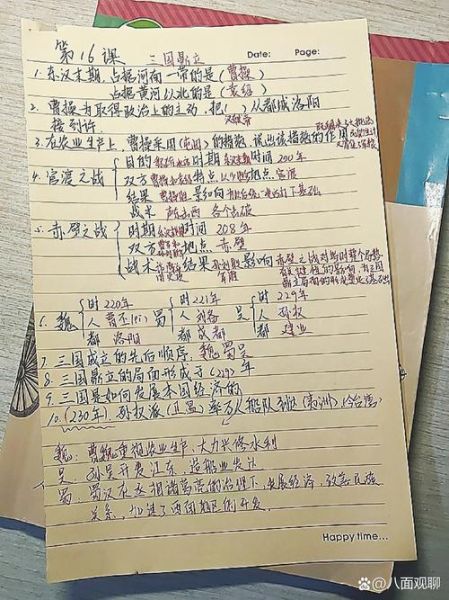 第16课 三国鼎立 Date: Page:
1. 东汉末期，占据河南一带的是（曹操）
占据黄河以北的是（袁绍）
2. 曹操为取得政治上的主动，把（）从都城洛阳
汉献帝
接到许
3. 在农业生产上，曹操采用（屯田）的措施，说出该措施的作用
4. 官渡之战
目的 时期 东汉末年 时间 200年
双方 曹操和袁绍 特点 以少胜多 地点 官渡
结果 曹操胜 影响
战术 声东击西 各个击破
5. 赤壁之战
时期 东汉末年 时间 208年
双方 地点 赤壁
战术 结果 影响 赤壁之战对
6. 魏 时 220年 蜀 时 221年 吴 时 229年
人 曹丕(pī) 人 刘备 人 孙权
都 洛阳 都 成都 都 建业
7. 三国成立的先后顺序. 魏蜀吴
8. 三国鼎立的局面形成于（229）年
9. 三国是如何发展本国经济的
10. （230年）. 孙权派（卫温）率万人船队到达（夷洲）今台湾
魏：曹魏重视农业生产，大力兴修水利
吴：孙吴开发江东，造船业发达
蜀：蜀汉在丞相诸葛亮的治理下，发展经济，改善民族
关系，促进了西南地区的开发.
Happy time...
@八面观聊